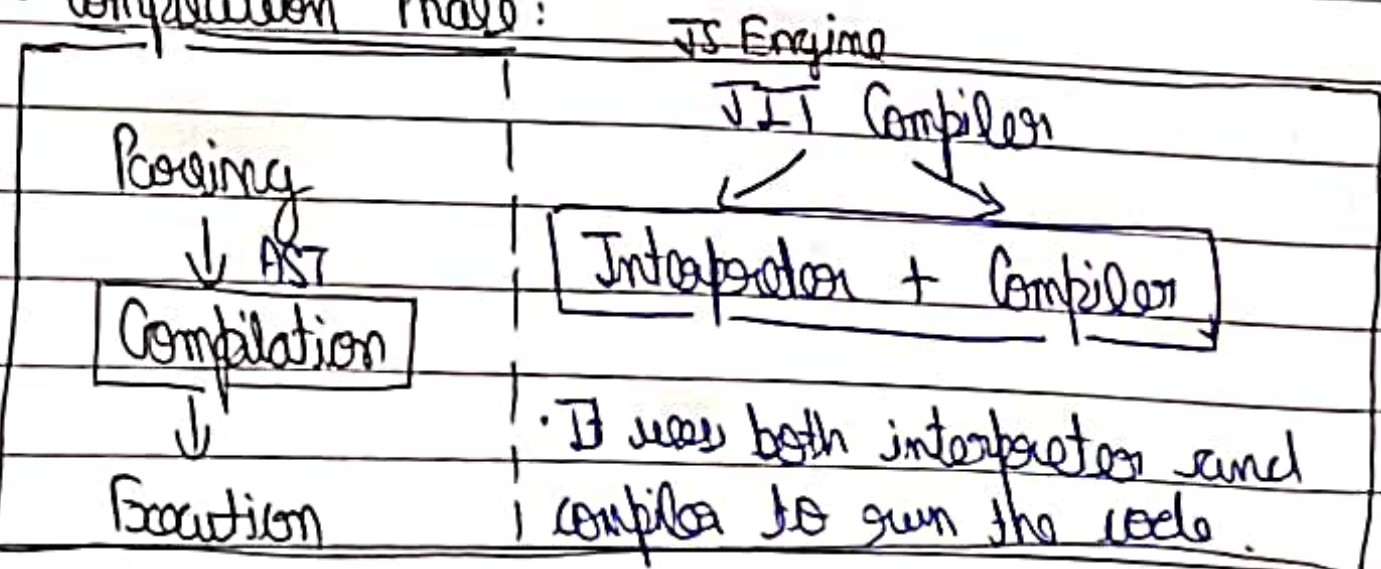 Compilation Phase:
JS Engine
Parsing
↓ AST
Compilation
↓
Execution
JIT Compiler
Interpreter + Compiler
· It uses both interpreter and
compiler to run the code.